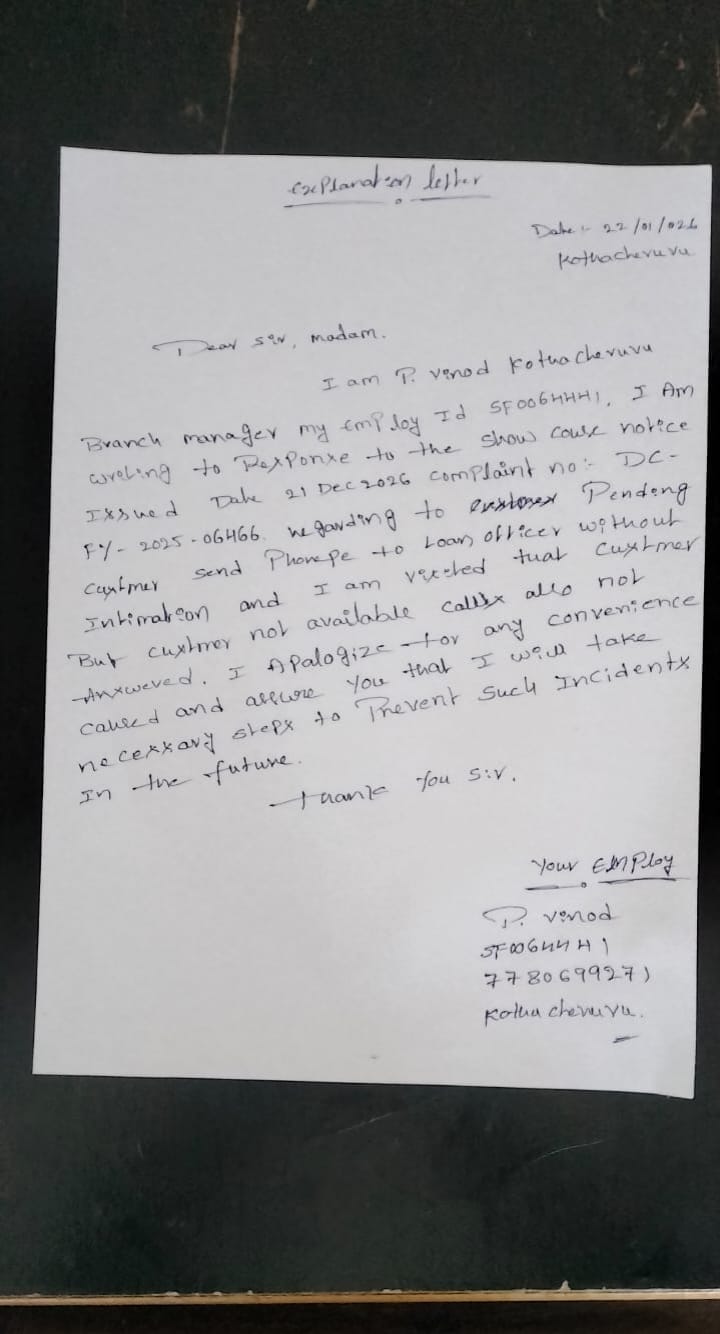 Explanation letter
Date :- 22/01/026
Kothacheruvu
Dear sir, madam.
I am P. vinod kothacheruvu
Branch manager my Employ Id SF0064441, I Am
writing to Response to the show couse notice
Issued Date 21 Dec 2026 complaint no:- DC-
FY-2025-06466. regarding to Pending
custmer send Phonepe to Loan officer without
Intimation and I am visited that custmer
But custmer not available calls also not
Answered. I Apalogize for any convenience
caused and assure you that I will take
necessary steps to Prevent such Incidents
In the future.
Thank you sir.
Your EmPloy
P. vinod
SF0064441
7780699271
Kotha cheruvu.